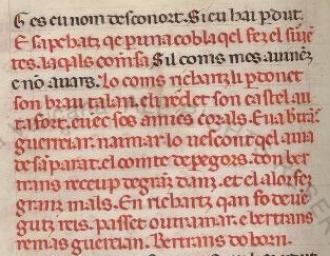 G es eu nom desconort. Sieu hai pdut.
E sapchatz qe puna cobla qel fez el siruē
tes. laqals comīsa Sil coms mes auinēz
e nō auars. lo coms richartz li pdonet
son brau talan. el rēdet son castel au
ta fort. en ec sos amics corals. En abtrā.
guerreiar. naimar. lo uescont qel auia
desāparat. el comte depegors. don ber
trans receup degrāz danz. et el alor fez
granz mals. En richartz qan fo deuē
gutz reis. passet outramar. e bertrans
remas guereian. Bertrans do born.